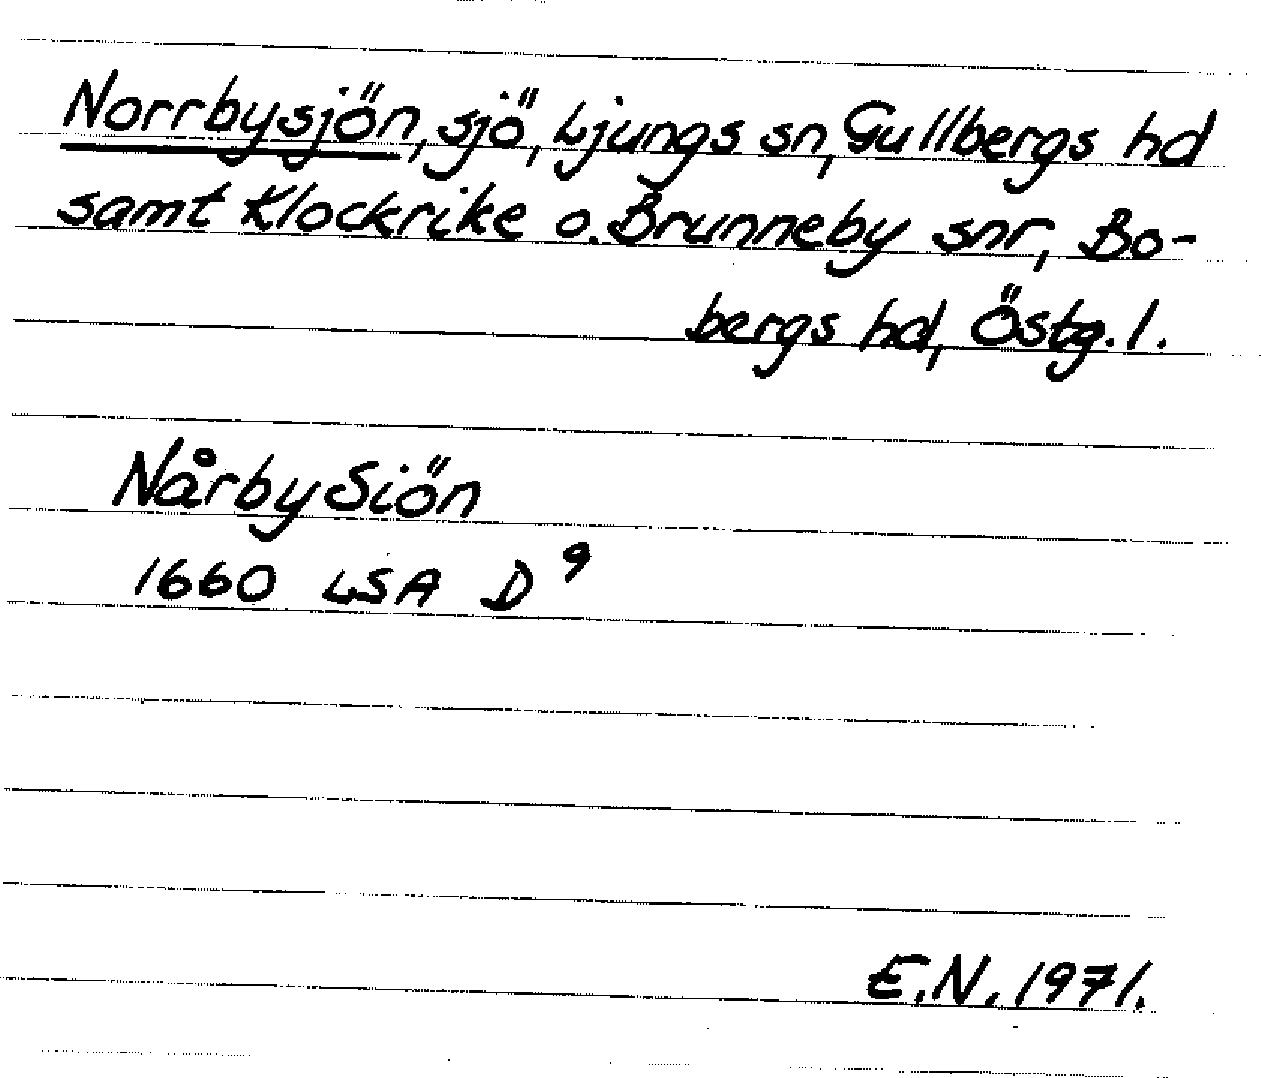 Norrbysjön, sjö, Ljungs sn, Gullbergs hd
samt Klockrike o. Brunneby snr, Bo-
bergs hd, Östg. l.
Nårby Siön
1660 LSA D⁹
E.N. 1971.